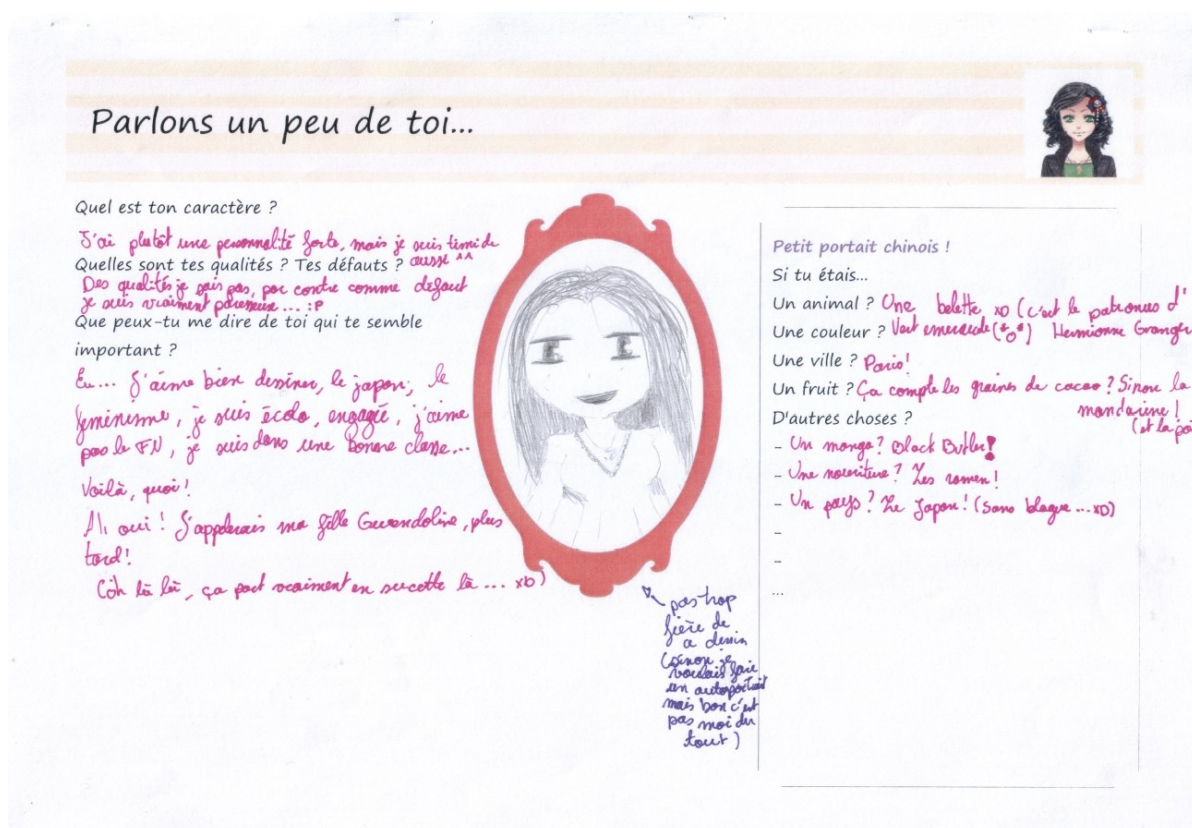 Parlons un peu de toi...
Quel est ton caractère ?
J'ai plutôt une personnalité forte, mais je suis timide
aussi ^^
Quelles sont tes qualités ? Tes défauts ?
Des qualités je sais pas, par contre comme défaut
je suis vraiment paresseuse... :P
Que peux-tu me dire de toi qui te semble
important ?
Eu... J'aime bien dessiner, le japon, le
féminisme, je suis écolo, engagée, j'aime
pas le FN, je suis dans une bonne classe...
Voilà, quoi !
Ah oui ! J'appelerais ma fille Gwendoline, plus
tard !
(Oh là là, ça part vraiment en sucette là... xD)
pas trop
fière de
ce dessin
(sinon je
voulais faire
un autoportrait
mais bon c'est
pas moi du
tout)
Petit portait chinois !
Si tu étais...
Un animal ? Une belette xD (c'est le patronus d'
Hermionne Granger
Une couleur ? Vert emeraude (*o*)
Une ville ? Paris !
Un fruit ? Ça compte les graines de cacao ? Sinon la
mandarine !
(et la
D'autres choses ?
- Un manga ? Black Butler !
- Une nourriture ? Les ramen !
- Un pays ? Le Japon ! (Sans blague ... xD)
-
-
...